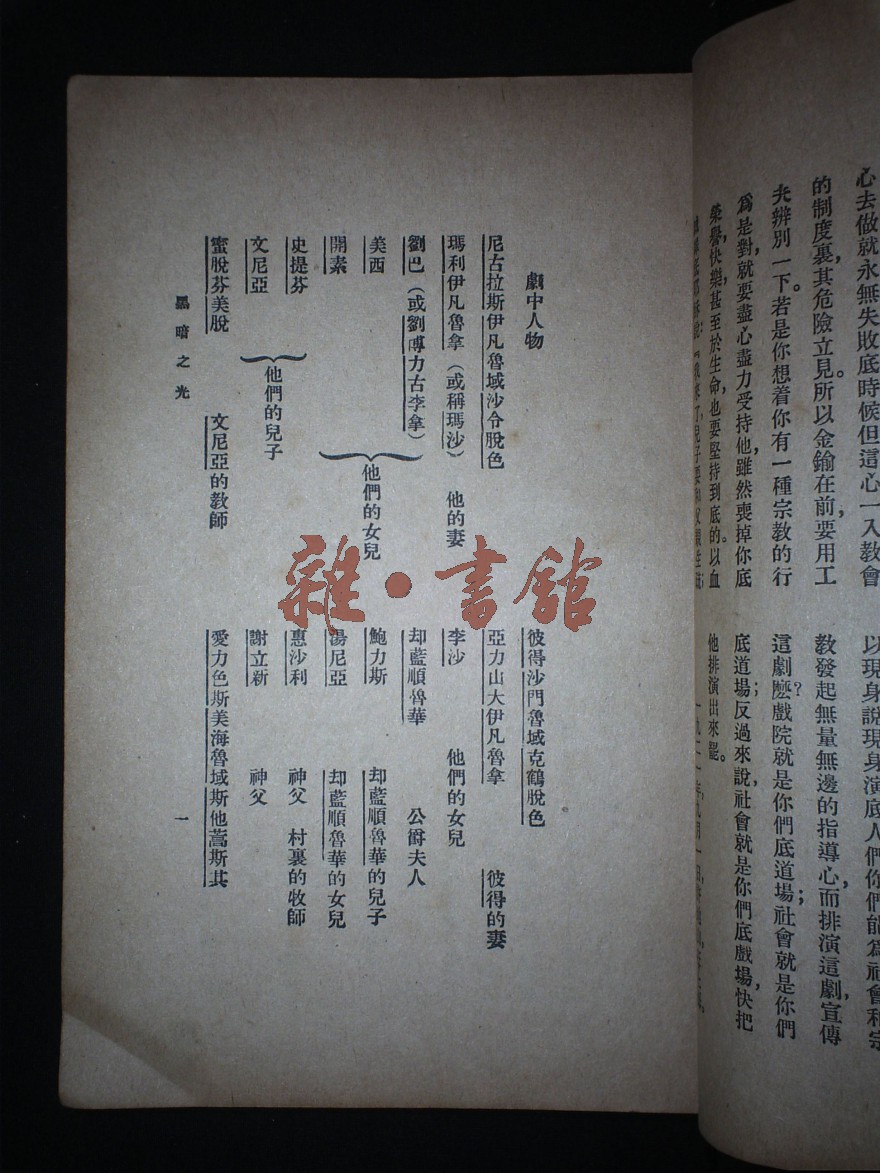 心去做就永無失敗底時候但這心一入教會
的制度裏其危險立見。所以金鍮在前，要用工
夫辨別一下。若是你想着你有一種宗教的行
爲是對，就要盡心盡力受持他，雖然喪掉你底
榮譽，快樂，甚至於生命，也要堅持到底的。以血
以現身說現身演底人們你們能爲社會和宗
教發起無量無邊的指導心，而排演這劇，宣傳
這劇麽？戲院就是你們底道場；社會就是你們
底道場；反過來說，社會就是你們底戲場，快把
他排演出來罷。
劇中人物
尼古拉斯伊凡魯域沙令脫色
瑪利伊凡魯拿（或稱瑪沙） 他的妻
劉巴（或劉博力古李拿）
美西
開素
他們的女兒
史提芬
文尼亞
他們的兒子
蜜脫芬美脫 文尼亞的教師
彼得沙門魯域克鶴脫色
亞力山大伊凡魯拿 彼得的妻
李沙 他們的女兒
却藍順魯華 公爵夫人
鮑力斯 却藍順魯華的兒子
湯尼亞 却藍順魯華的女兒
惠沙利 神父 村裏的牧師
謝立新 神父
愛力色斯美海魯域斯他蒿斯其
黑暗之光
一
雜·書館